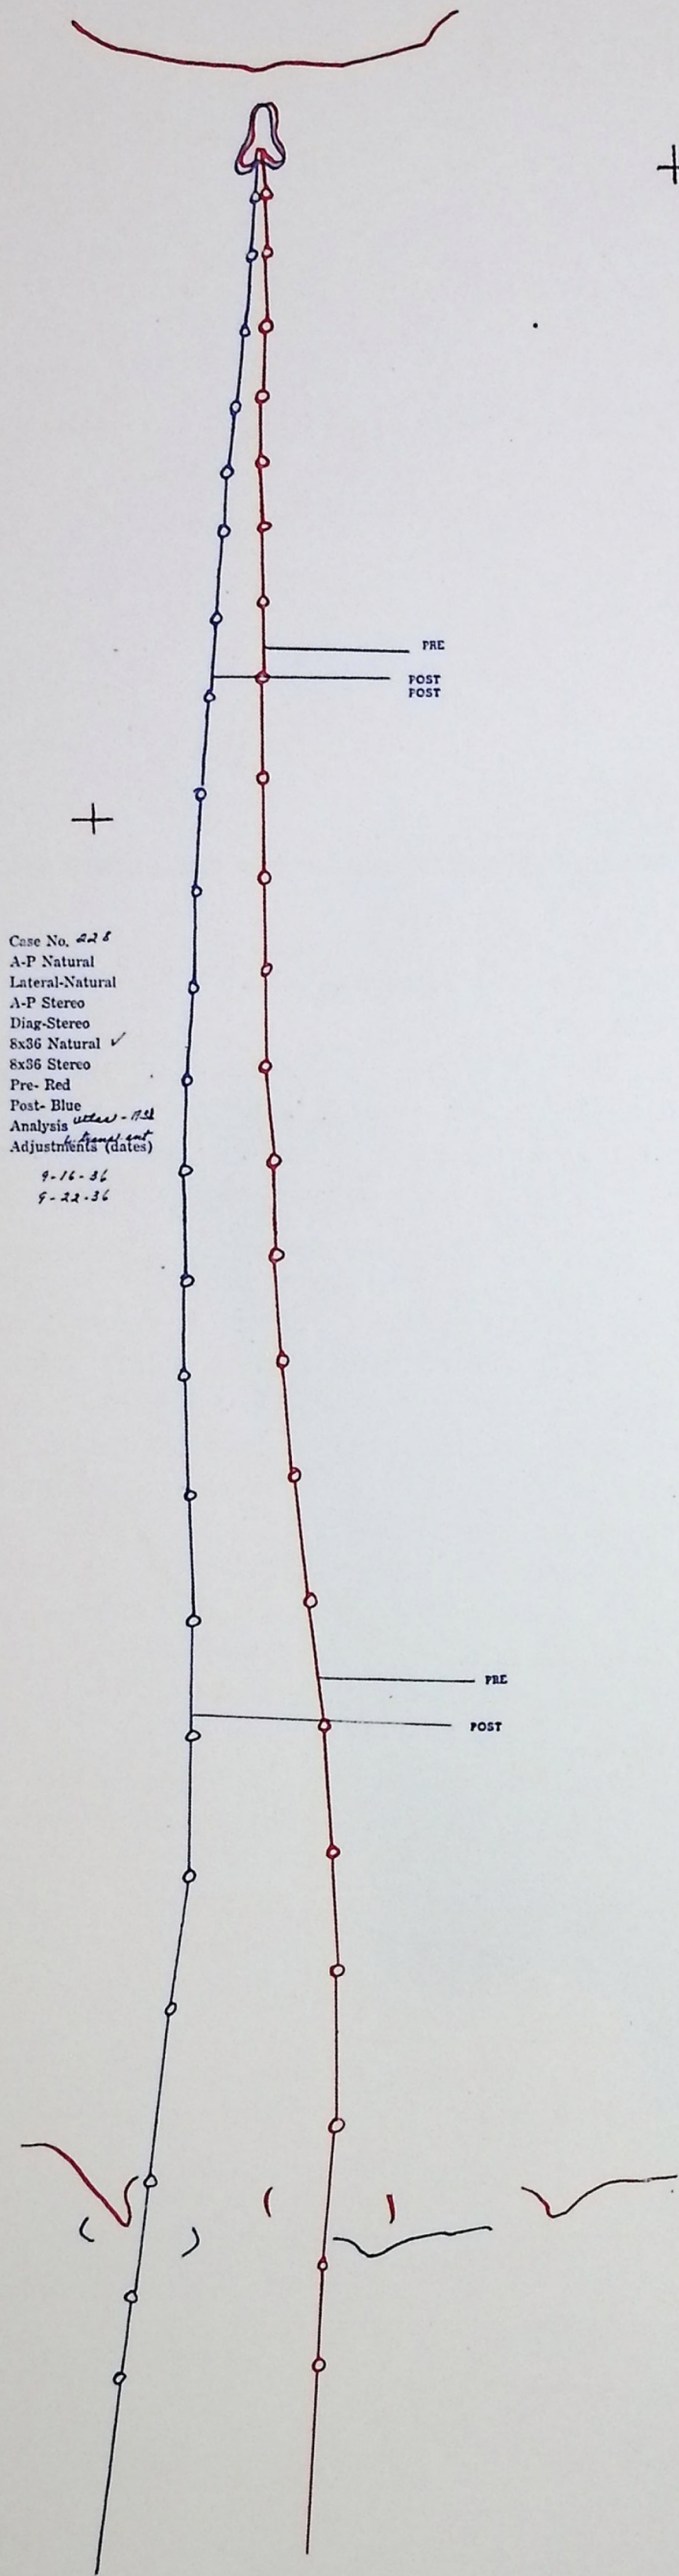 PRE
POST
POST
Case No. 228
A-P Natural
Lateral-Natural
A-P Stereo
Diag-Stereo
8x36 Natural ✓
8x36 Stereo
Pre- Red
Post- Blue
Analysis
Adjustments (dates)
9-16-36
9-22-36
PRE
POST